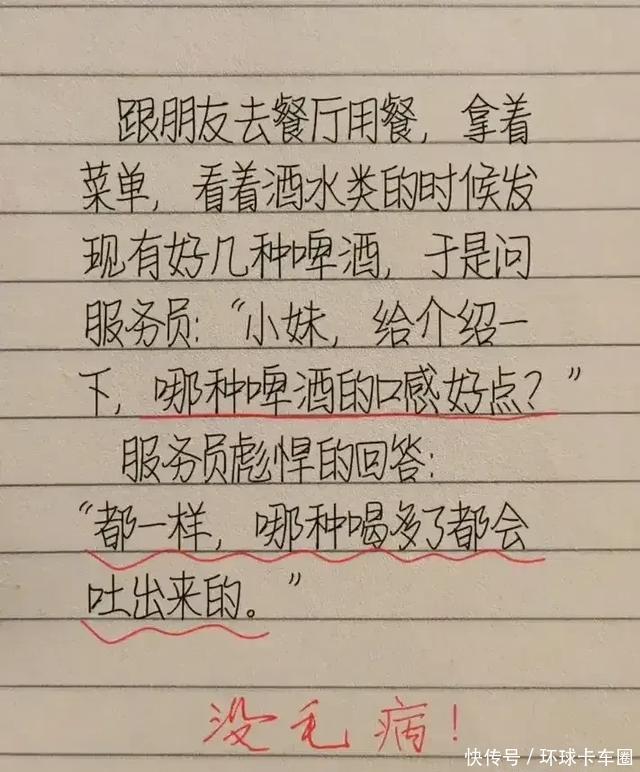 跟朋友去餐厅用餐，拿着
菜单，看着酒水类的时候发
现有好几种啤酒，于是问
服务员：“小妹，给介绍一
下，哪种啤酒的口感好点？”
服务员彪悍的回答：
“都一样，哪种喝多了都会
吐出来的。”
没毛病！
快传号／环球卡车圈